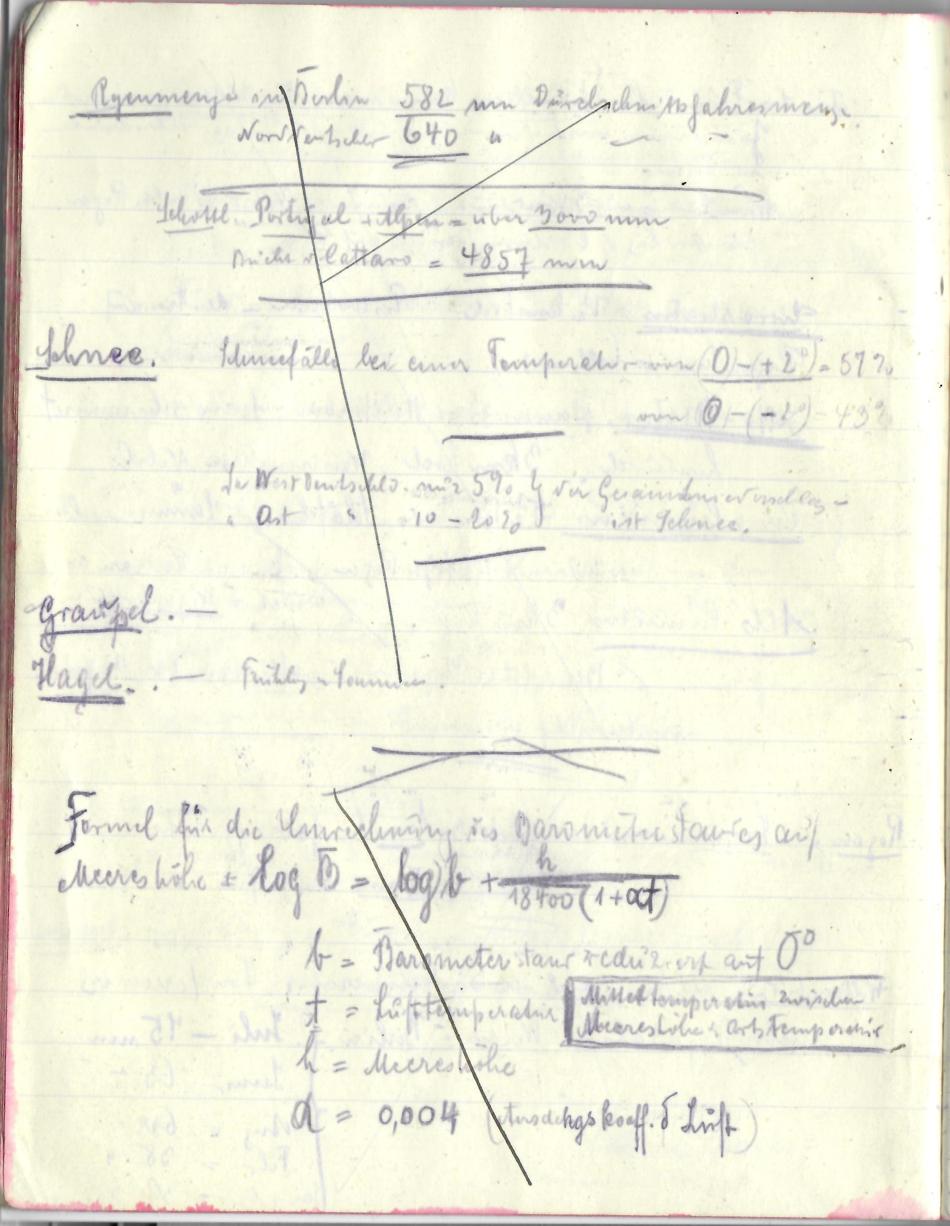 Regenmenge in Berlin 582 mm Durchschnittsjahresmenge.
Norddeutschl. 640 "
Schottl. Portugal u. Alpen = über 3000 mm
Bucht v. Cattaro = 4857 mm
Schnee. Schneefälle bei einer Temperatur von (0-(+2°) = 57%
von 0-(-2°) - 43%
In Westdeutschld. nur 5% der Gesamtniederschlag-
" Ost " 10-20% ist Schnee.
Graupel. —
Hagel. . — Frühlg u Sommer.
Formel für die Umrechnung des Barometerstandes auf
Meereshöhe = log B = log b + h / 18400 (1+αt)
b = Barometerstand reduziert auf 0°
t = Lufttemperatur Mitteltemperatur zwischen
Meereshöhe u Ortstemperatur
h = Meereshöhe
α = 0,004 (Ausdehgskoeff. d Luft)